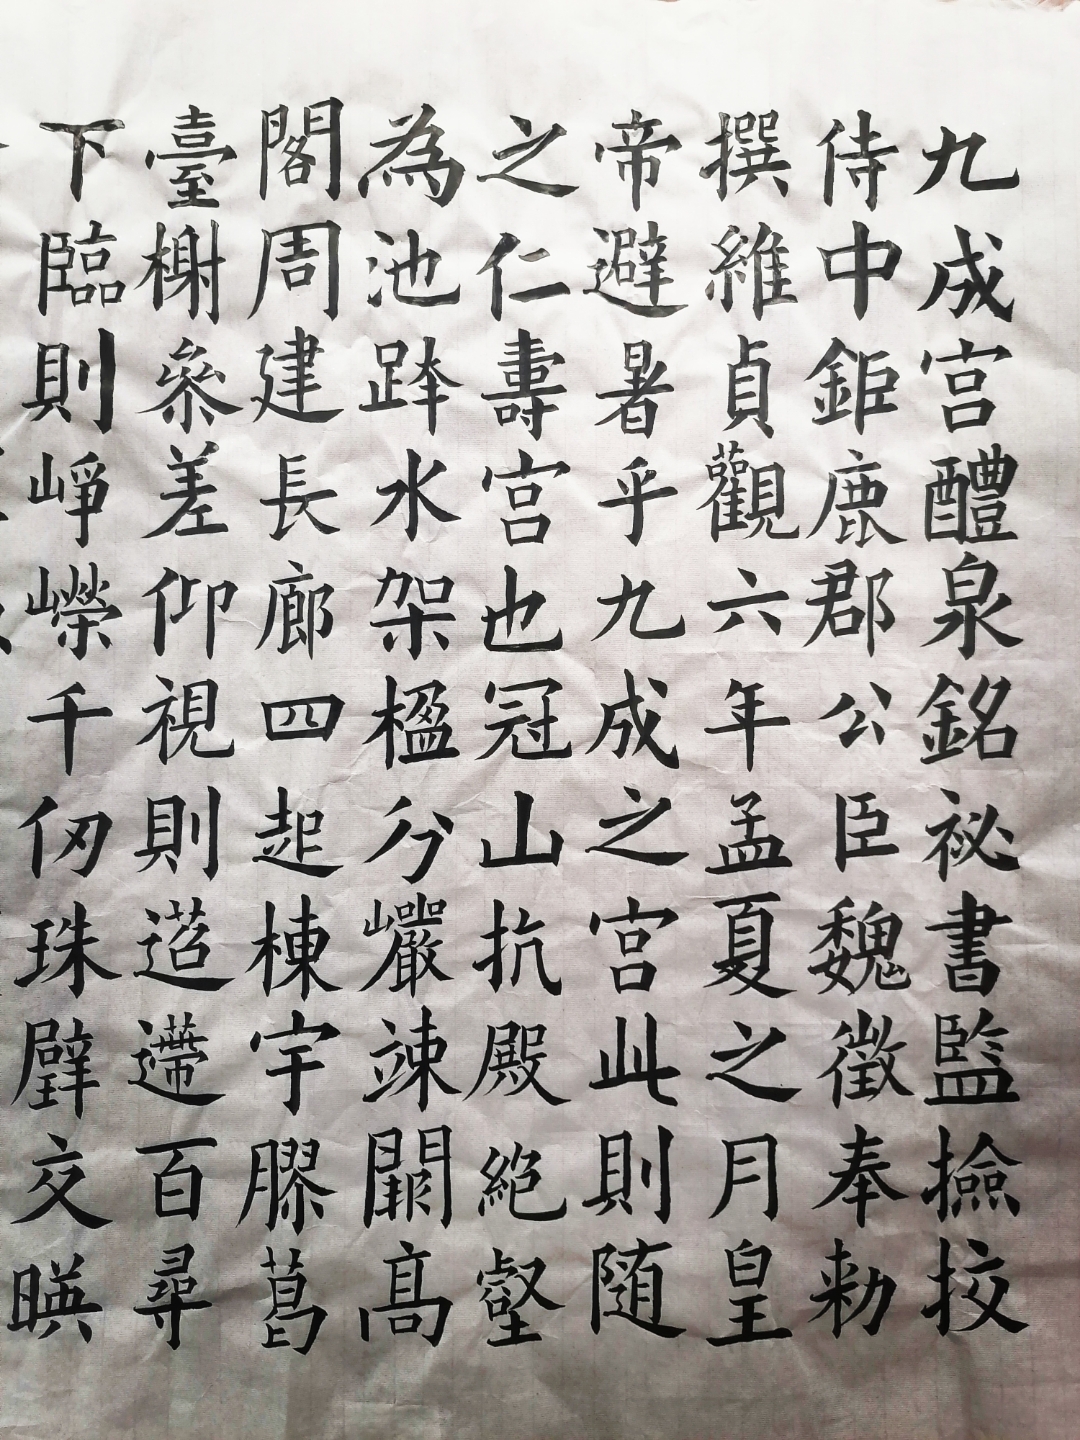 九成宫醴泉銘祕書監撿挍
侍中鉅鹿郡公臣魏徵奉勑
撰維貞觀六年孟夏之月皇
帝避暑乎九成之宫此則随
之仁壽宫也冠山抗殿絶壑
為池跨水架楹分巗竦闕高
閣周建長廊四起棟宇膠葛
臺榭參差仰視則迢遰百尋
下臨則崢嶸千仞珠璧交暎